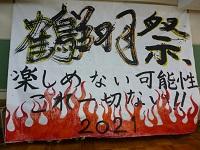 鶴翔祭、
楽しめない可能性
これ一切ない!!
2021